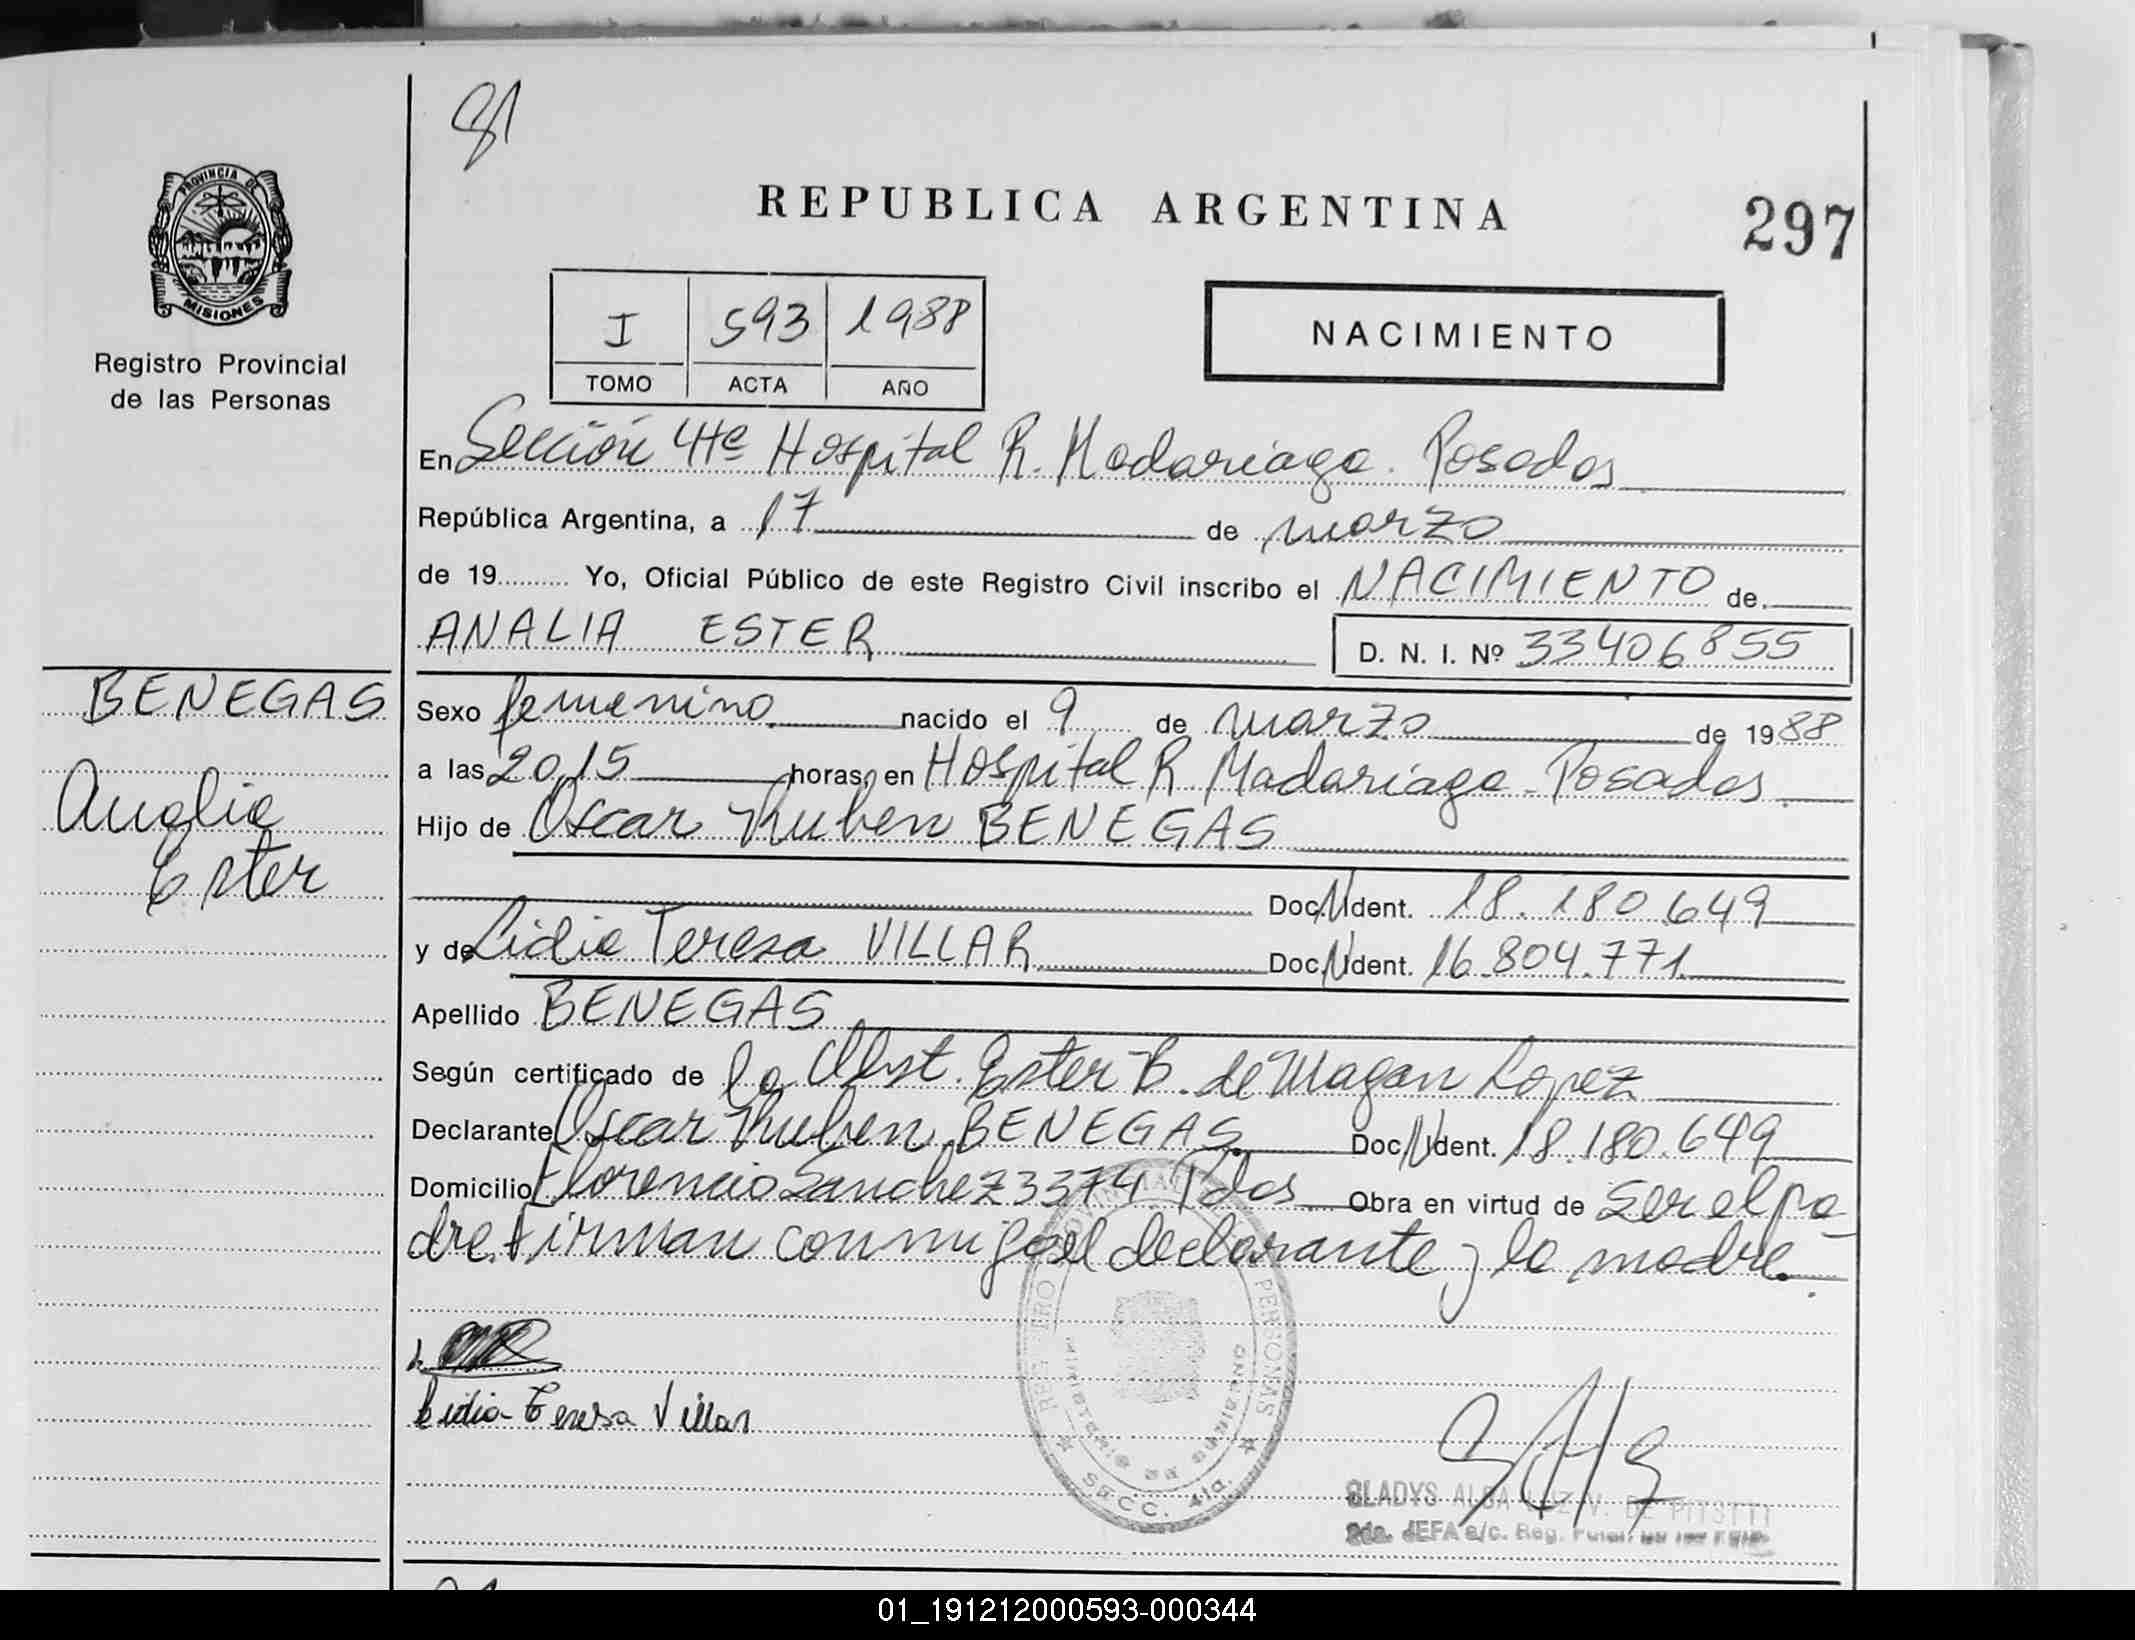 81
REPUBLICA ARGENTINA
297
PROVINCIA DE MISIONES
Registro Provincial
de las Personas
I 593 1988
TOMO ACTA AÑO
NACIMIENTO
En Sección 4te Hospital R. Madariaga. Posadas
República Argentina, a 17 de marzo
de 19.......... Yo, Oficial Público de este Registro Civil inscribo el NACIMIENTO de
ANALIA ESTER
D. N. I. Nº 33406855
BENEGAS
Analia
Ester
Sexo femenino nacido el 9 de marzo de 1988
a las 20,15 horas, en Hospital R. Madariaga - Posadas
Hijo de Oscar Ruben BENEGAS
Doc. Ident. 18.180.649
y de Lidia Teresa VILLAR Doc. Ident. 16.804.771
Apellido BENEGAS
Según certificado de la Obst. Ester B. de Magan Lopez
Declarante Oscar Ruben BENEGAS Doc. Ident. 18.180.649
Domicilio Florencio Sanchez 3374 Pdas Obra en virtud de ser el pa
dre. Firman conmigo el declarante y la madre.
Lidia Teresa Villar
PERSONAS
Secc. 4ta.
GLADYS ALBA
2da. JEFA a/c. Reg.
01_191212000593-000344